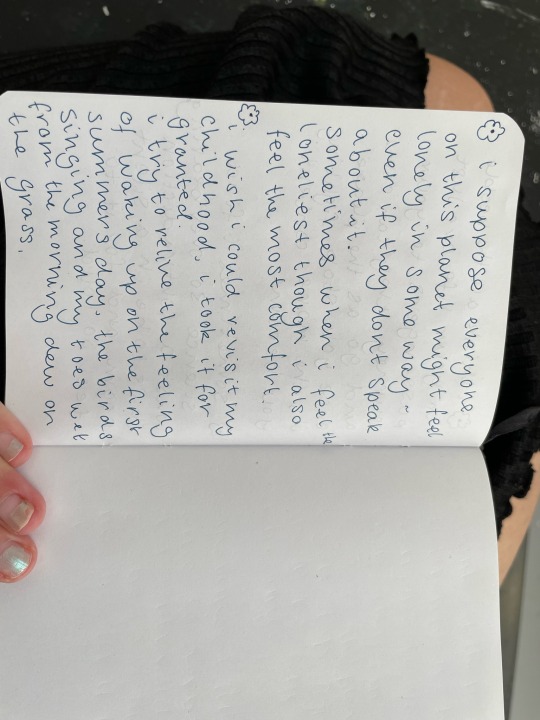 i suppose everyone
on this planet might feel
lonely in some way ~
even if they dont speak
about it.
Sometimes when i feel the
loneliest though i also
feel the most comfort.
i wish i could revisit my
childhood, i took it for
granted.
i try to relive the feeling
of waking up on the first
summers day, the birds
singing and my toes wet
from the morning dew on
the grass.